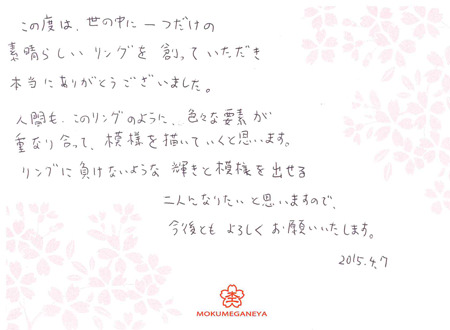 この度は、世の中に一つだけの
素晴らしいリングを創っていただき
本当にありがとうございました。
人間も、このリングのように、色々な要素が
重なり合って、模様を描いていくと思います。
リングに負けないような輝きと模様を出せる
二人になりたいと思いますので、
今後ともよろしくお願いいたします。
2015.4.7
MOKUMEGANEYA